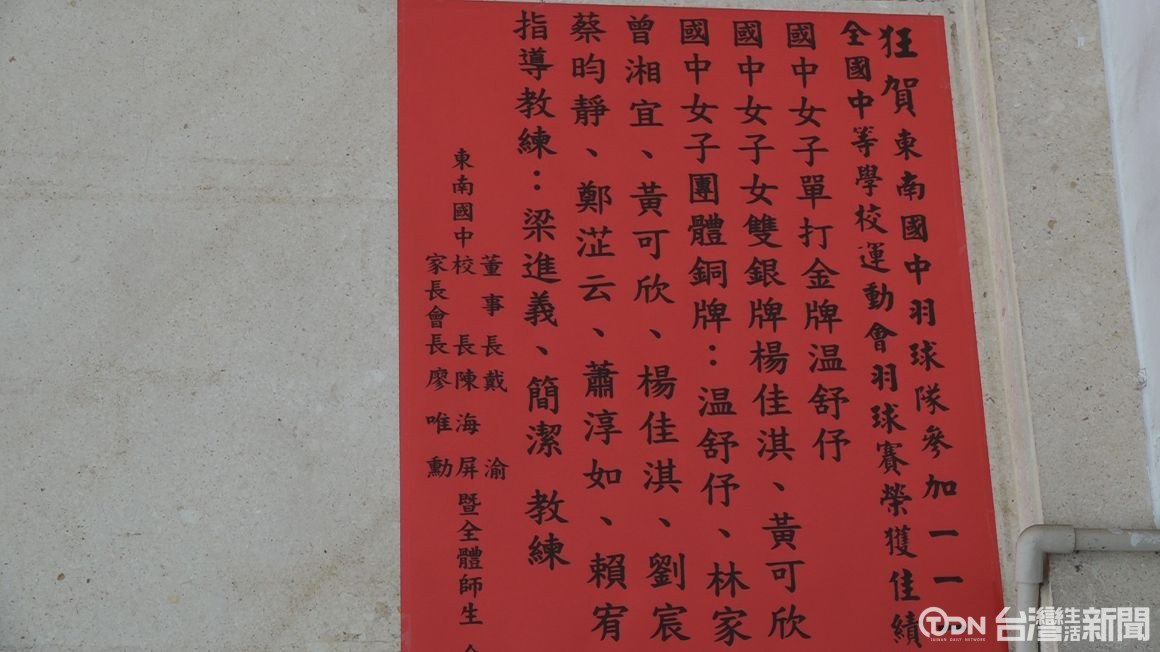 狂賀東南國中羽球隊參加一一
全國中等學校運動會羽球賽榮獲佳績
國中女子單打金牌温舒伃
國中女子女雙銀牌楊佳淇、黃可欣
國中女子團體銅牌：温舒伃、林家
曾湘宜、黃可欣、楊佳淇、劉宸
蔡昀靜、鄭淽云、蕭淳如、賴宥
指導教練：梁進義、簡潔 教練
董事長戴渝
東南國中校長陳海屏 暨全體師生
家長會長廖唯勳
TDN 台灣生活新聞
TAIWAN DAILY NETWORK